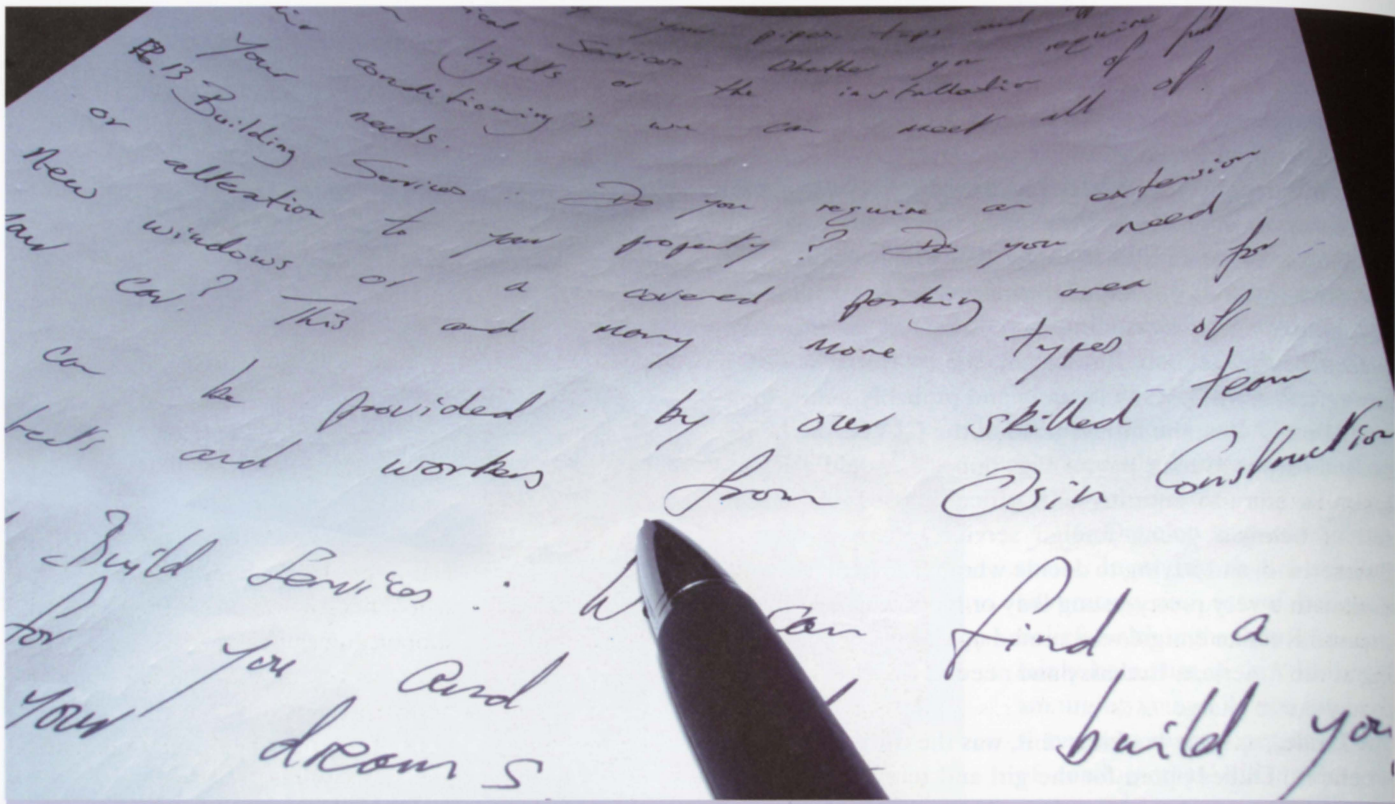 your pipes, taps and
Services. Whether you require full
lights or the installation of
your conditioning; we can meet all of
needs.
Pg.13 Building Services. Do you require an extension
or alteration to your property? Do you need
new windows or a covered parking area for
your car? This and many more types of
can be provided by our skilled team
and workers from Osin Construction
Build Services. We can find a
for you and build you
your dreams